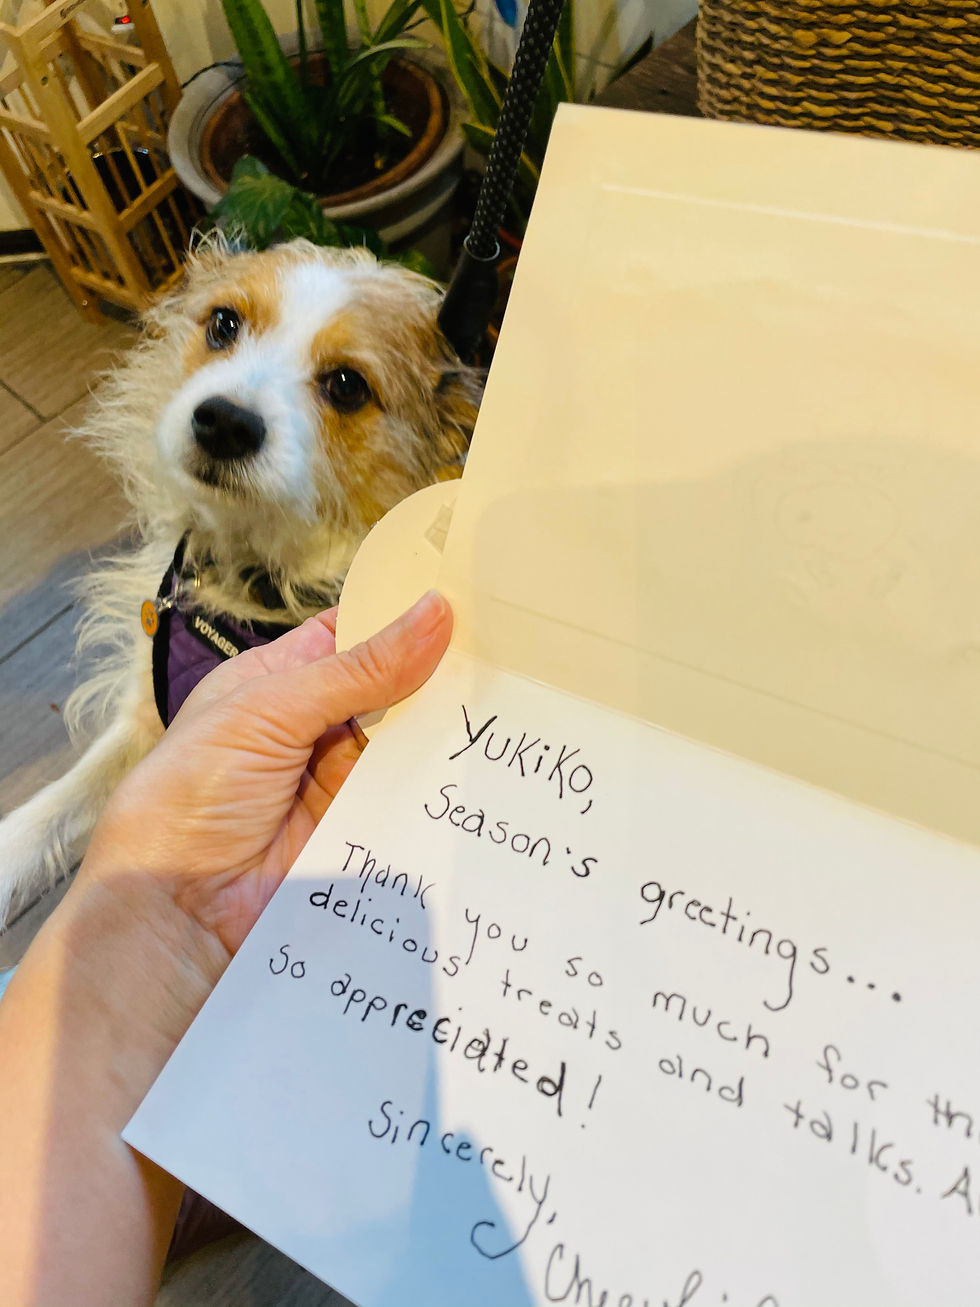 VOYAGER
YuKiKo,
Season's greetings...
Thank you so much for
delicious treats and talks.
So appreciated!
Sincerely,